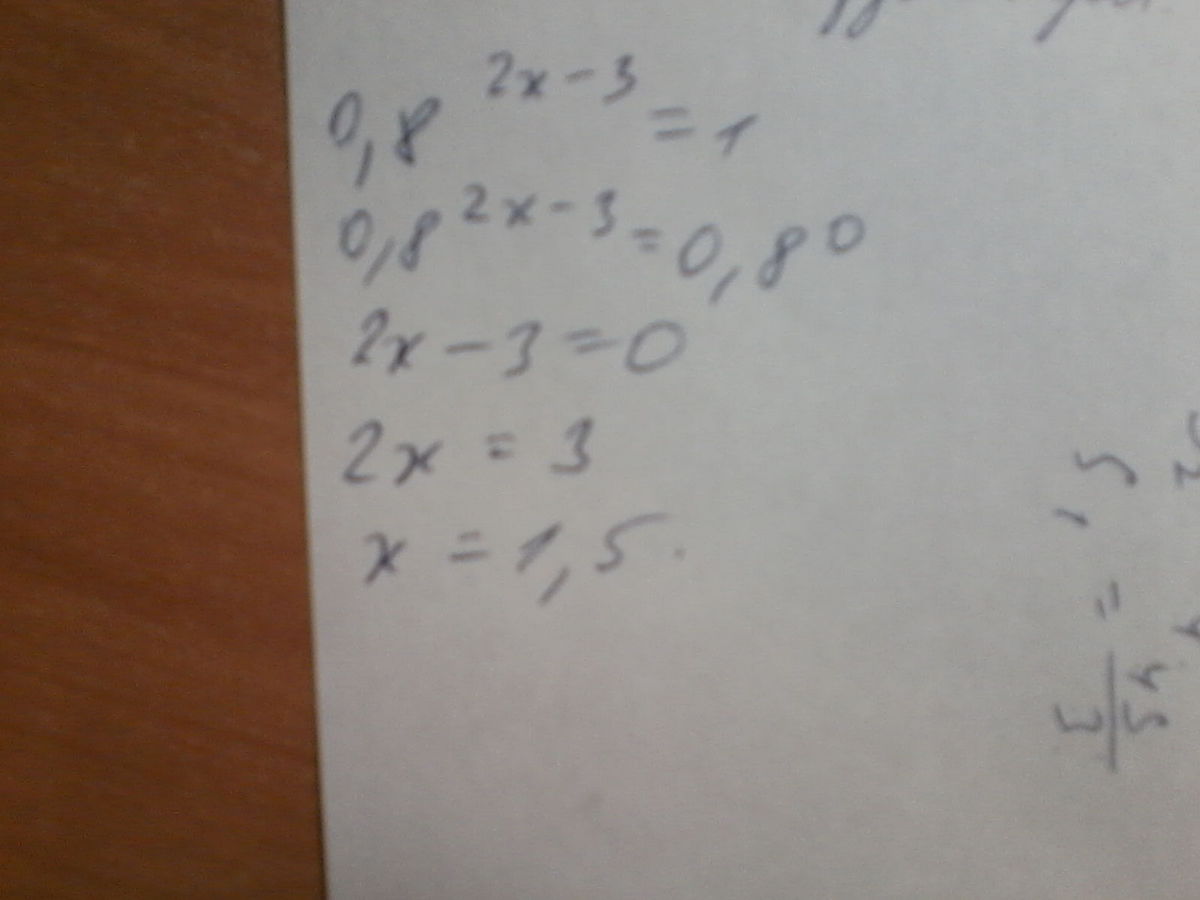 0,8^(2x-3) = 1
0,8^(2x-3) = 0,8^0
2x - 3 = 0
2x = 3
x = 1,5.